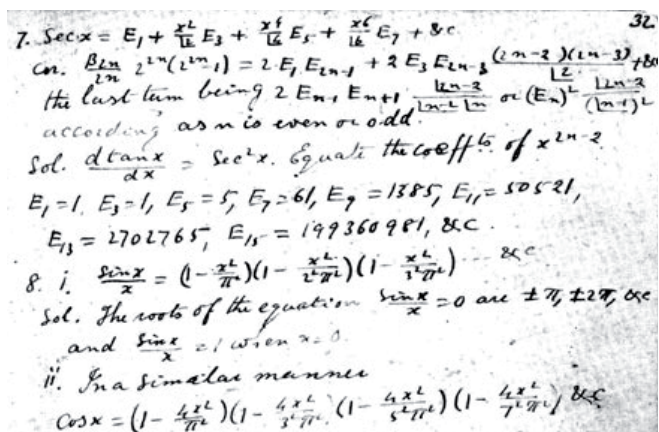 32
7. Sec x = E₁ + x²/|2 E₃ + x⁴/|4 E₅ + x⁶/|6 E₇ + &c
Cor. B₂ₙ/2n 2²ⁿ(2²ⁿ-1) = 2 E₁ E₂ₙ₋₁ + 2 E₃ E₂ₙ₋₃ (2n-2)(2n-3)/|2 + &c
the last term being 2 Eₙ₋₁ Eₙ₊₁ |2n-2/|n-2 |n or (Eₙ)² |2n-2/(|n-1)²
according as n is even or odd.
Sol. d tan x/dx = Sec² x. Equate the coeffts of x²ⁿ⁻²
E₁ = 1, E₃ = 1, E₅ = 5, E₇ = 61, E₉ = 1385, E₁₁ = 50521,
E₁₃ = 2702765, E₁₅ = 199360981, &c.
8. i. Sin x/x = (1 - x²/π²)(1 - x²/2²π²)(1 - x²/3²π²) ... &c
Sol. The roots of the equation Sin x/x = 0 are ±π, ±2π, &c
and Sin x/x = 1 when x = 0.
ii. In a similar manner
Cos x = (1 - 4x²/π²)(1 - 4x²/3²π²)(1 - 4x²/5²π²)(1 - 4x²/7²π²) &c